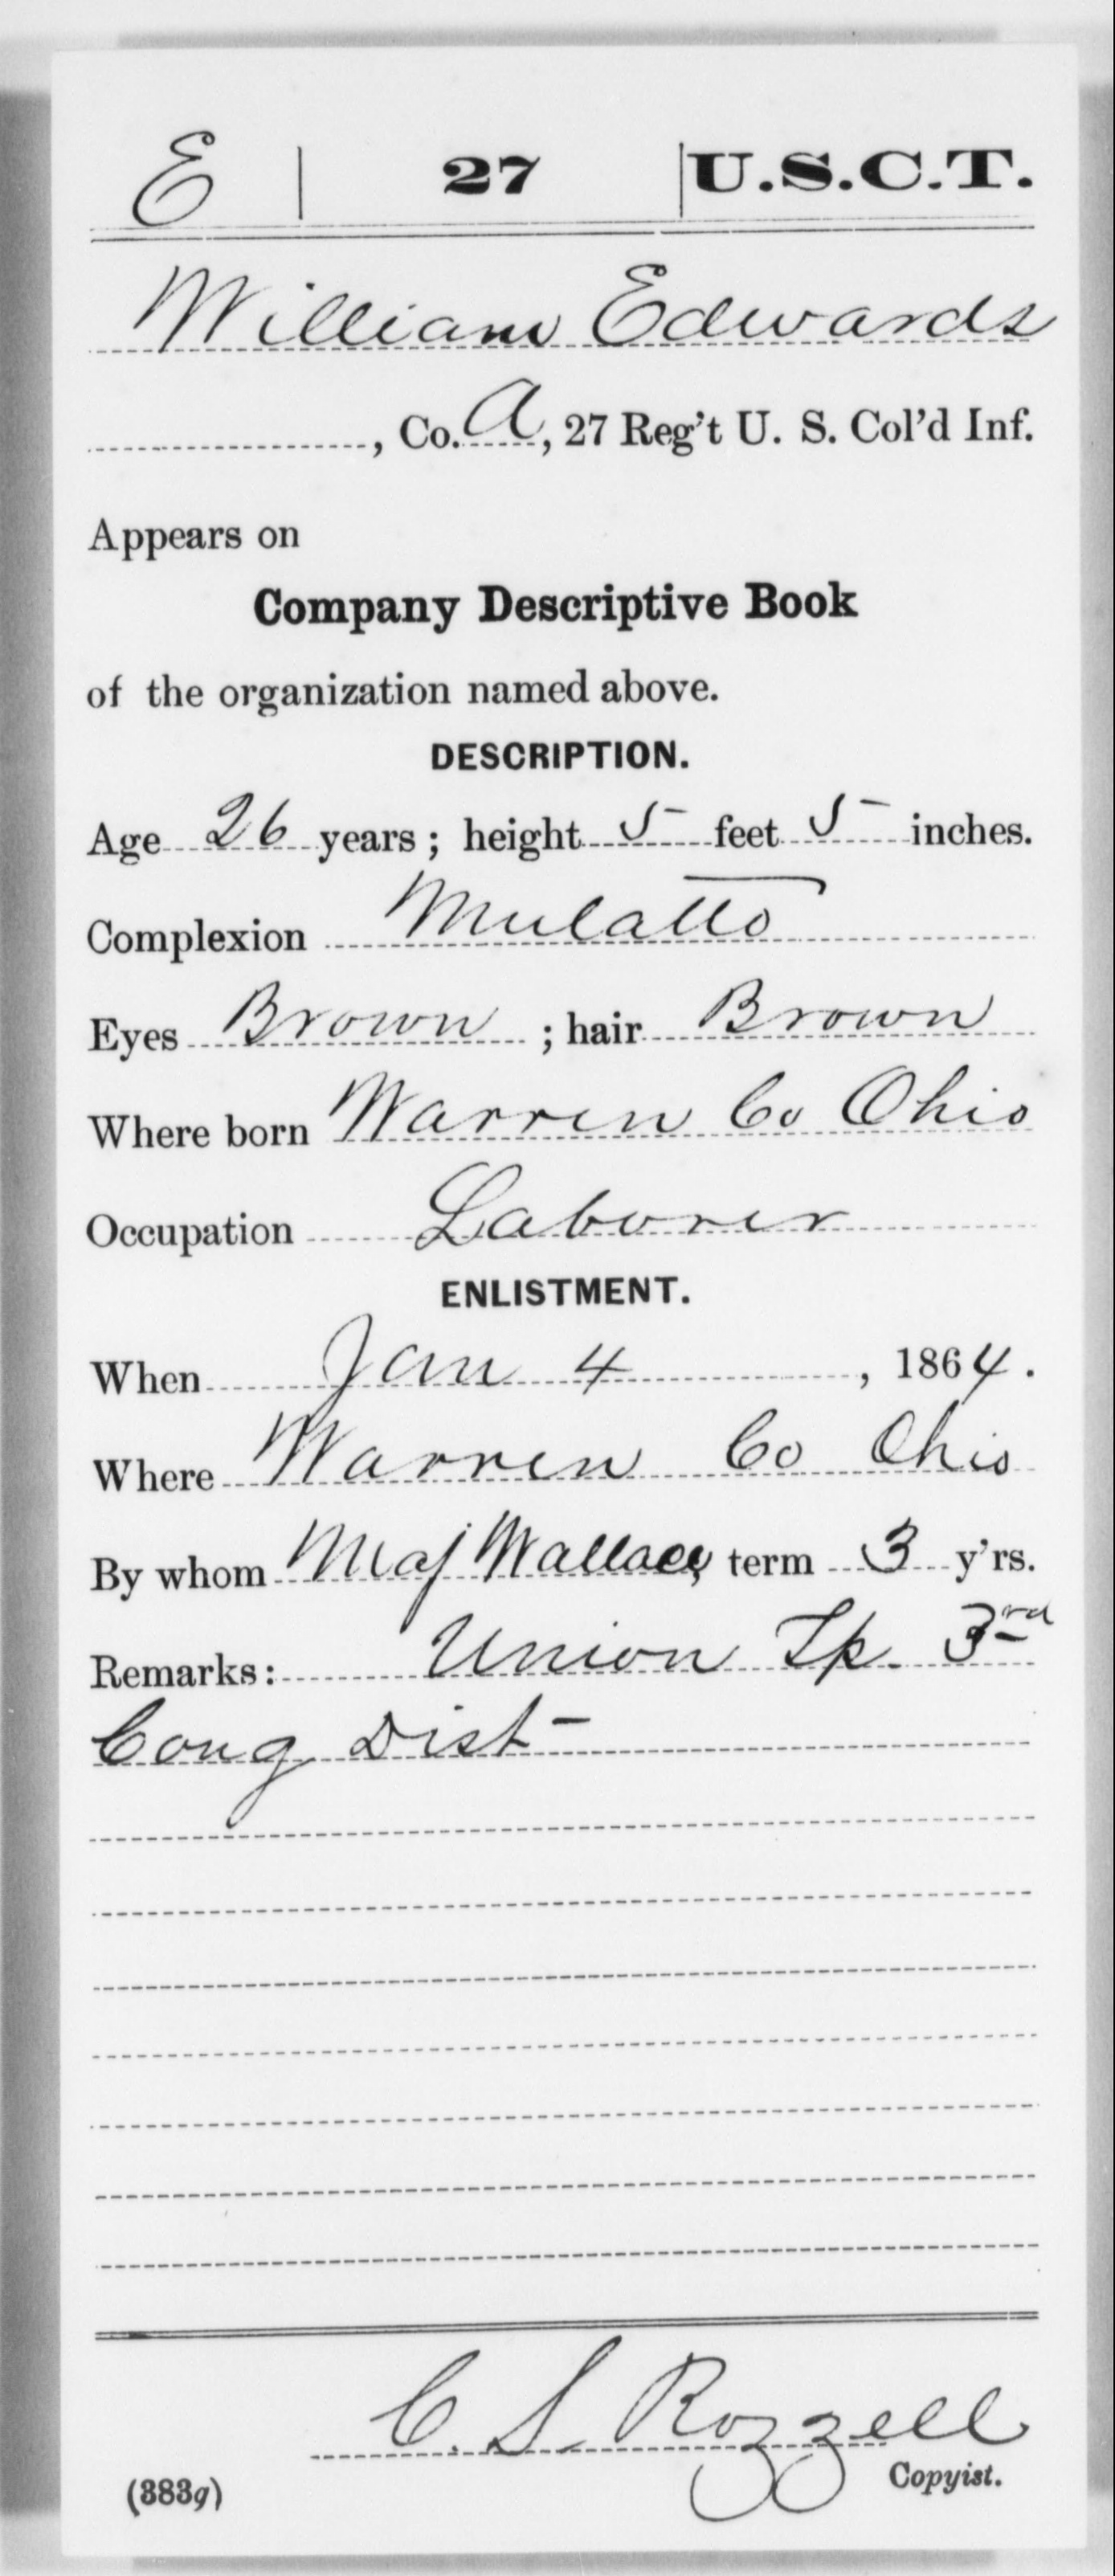 E | 27 | U.S.C.T.
William Edwards
, Co. A, 27 Reg't U. S. Col'd Inf.
Appears on
Company Descriptive Book
of the organization named above.
DESCRIPTION.
Age 26 years; height 5 feet 5 inches.
Complexion Mulatto
Eyes Brown ; hair Brown
Where born Warren Co Ohio
Occupation Laborer
ENLISTMENT.
When Jan 4 , 1864.
Where Warren Co Ohio
By whom Maj Wallace, term 3 y'rs.
Remarks: Union Tp. 3rd
Cong Dist-
C. S. Rozzell
Copyist.
(383g)